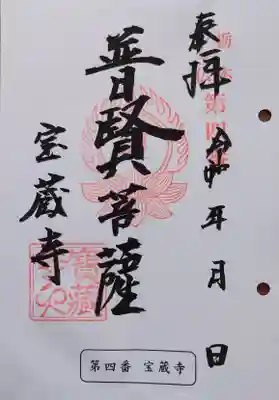 奉拝
令和 年 月 日
第四番
普賢菩薩
宝蔵寺
第四番 宝蔵寺